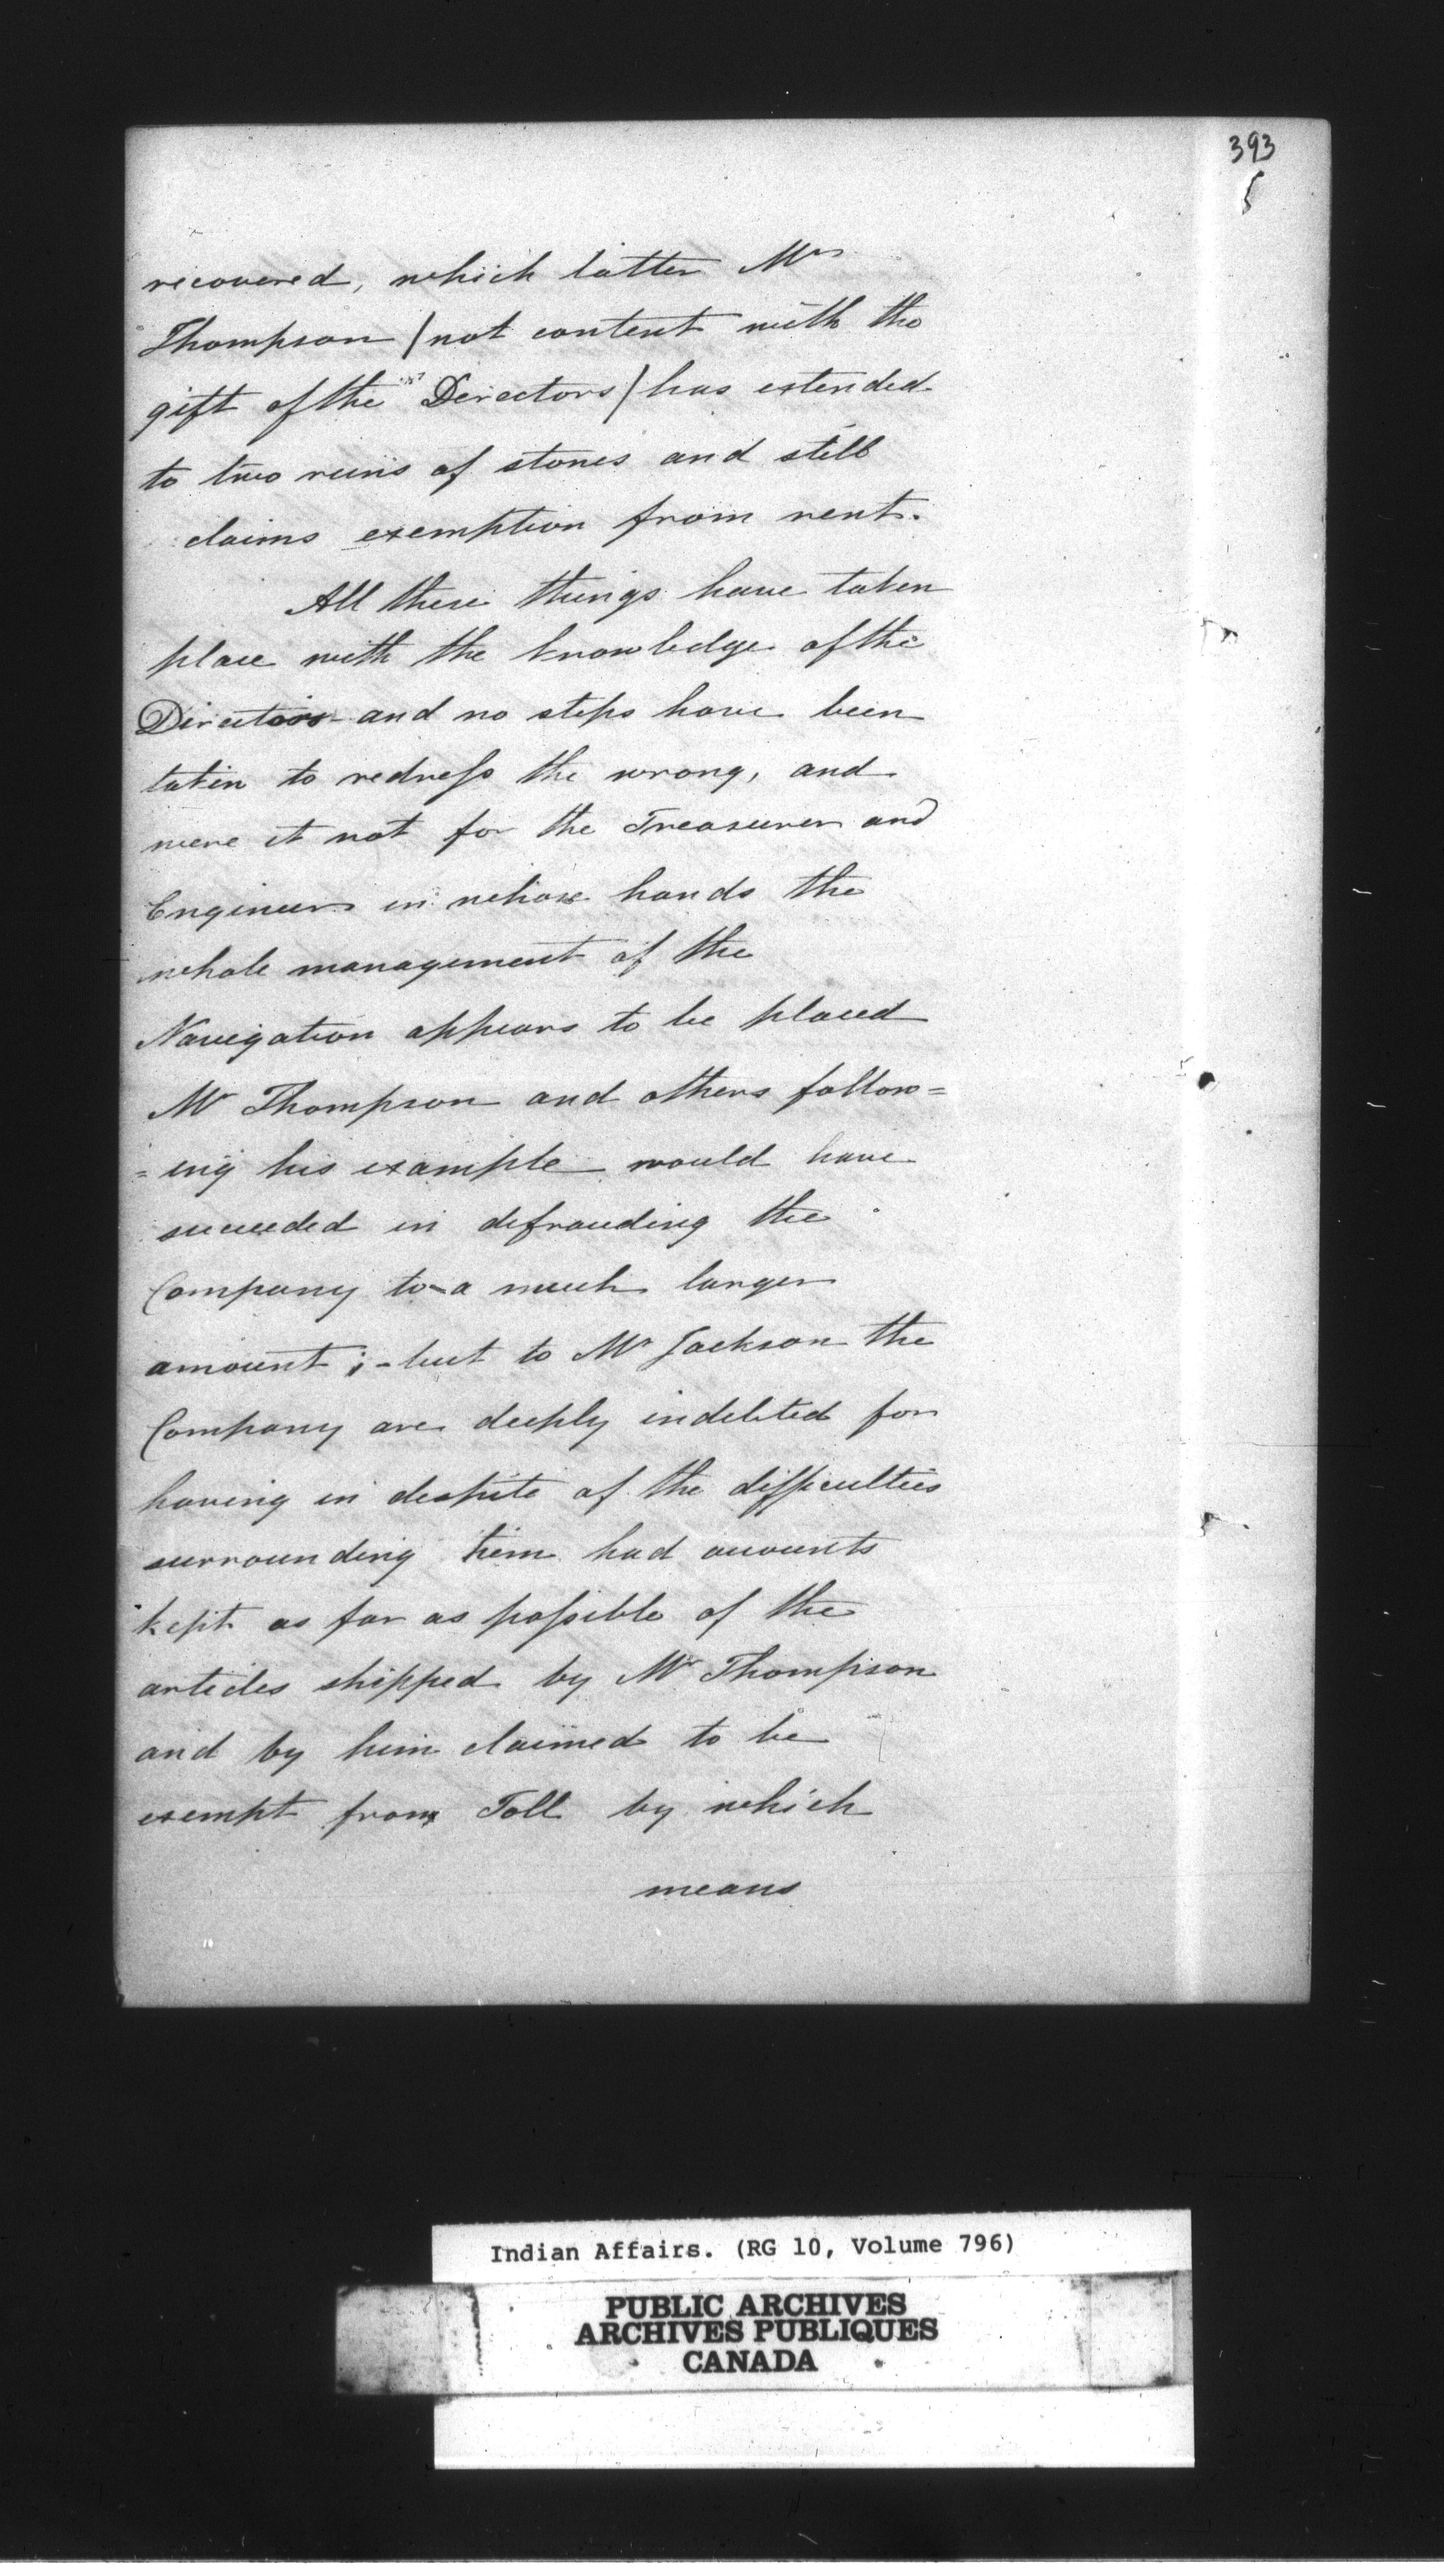 393
5
recovered, which latter Mr
Thompson (not content with the
gift of the Directors) has extended
to two runs of stones and still
claims exemption from rent.
All these things have taken
place with the knowledge of the
Directors and no steps have been
taken to redress the wrong, and
were it not for the Treasurer and
Engineer in whose hands the
whole management of the
Navigation appears to be placed
Mr Thompson and others follow=
=ing his example would have
succeeded in defrauding the
Company to a much larger
amount ;- but to Mr Jackson the
Company are deeply indebted for
having in despite of the difficulties
surrounding him had accounts
kept as far as possible of the
articles shipped by Mr Thompson
and by him claimed to be
exempt from Toll by which
means
Indian Affairs. (RG 10, Volume 796)
PUBLIC ARCHIVES
ARCHIVES PUBLIQUES
CANADA